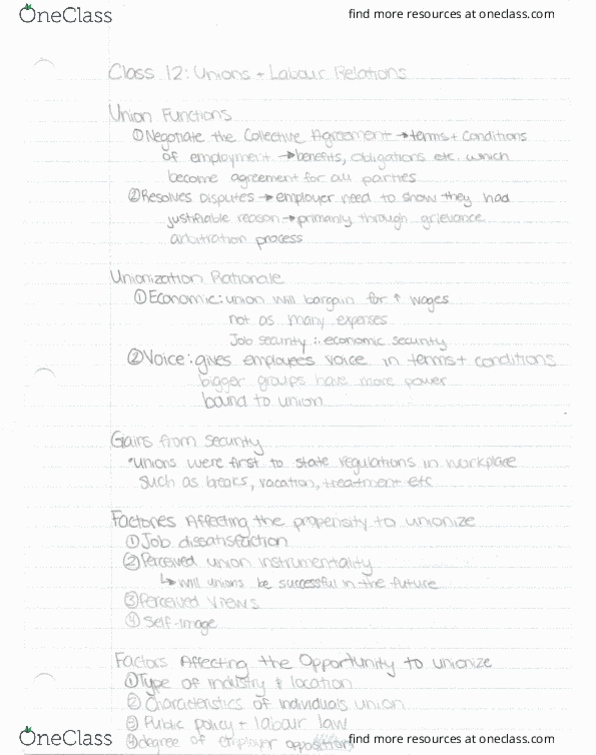 OneClass
find more resources at oneclass.com
Class 12: Unions + Labour Relations
Union Functions
① Negotiate the Collective Agreement → terms + conditions
of employment → benefits, obligations etc. which
become agreement for all parties
② Resolves Disputes → employer need to show they had
justifiable reason → primarily through grievance
arbitration process
Unionization Rationale
① Economic: union will bargain for ↑ wages
not as many expenses
Job security ∴ economic security
② Voice: gives employees voice in terms + conditions
bigger groups have more power
bound to union
Gains from security
*unions were first to state regulations in workplace
such as breaks, vacation, treatment etc
Factores Affecting the propensity to unionize
① Job dissatisfaction
② Perceived union instrumentality
↳ will unions be successful in the future
③ Perceived Views
④ Self-Image
Factors Affecting the Opportunity to unionize
① Type of industry & location
② Characteristics of individuals union
③ Public policy + labour law
④ degree of employer opposition
OneClass
find more resources at oneclass.com